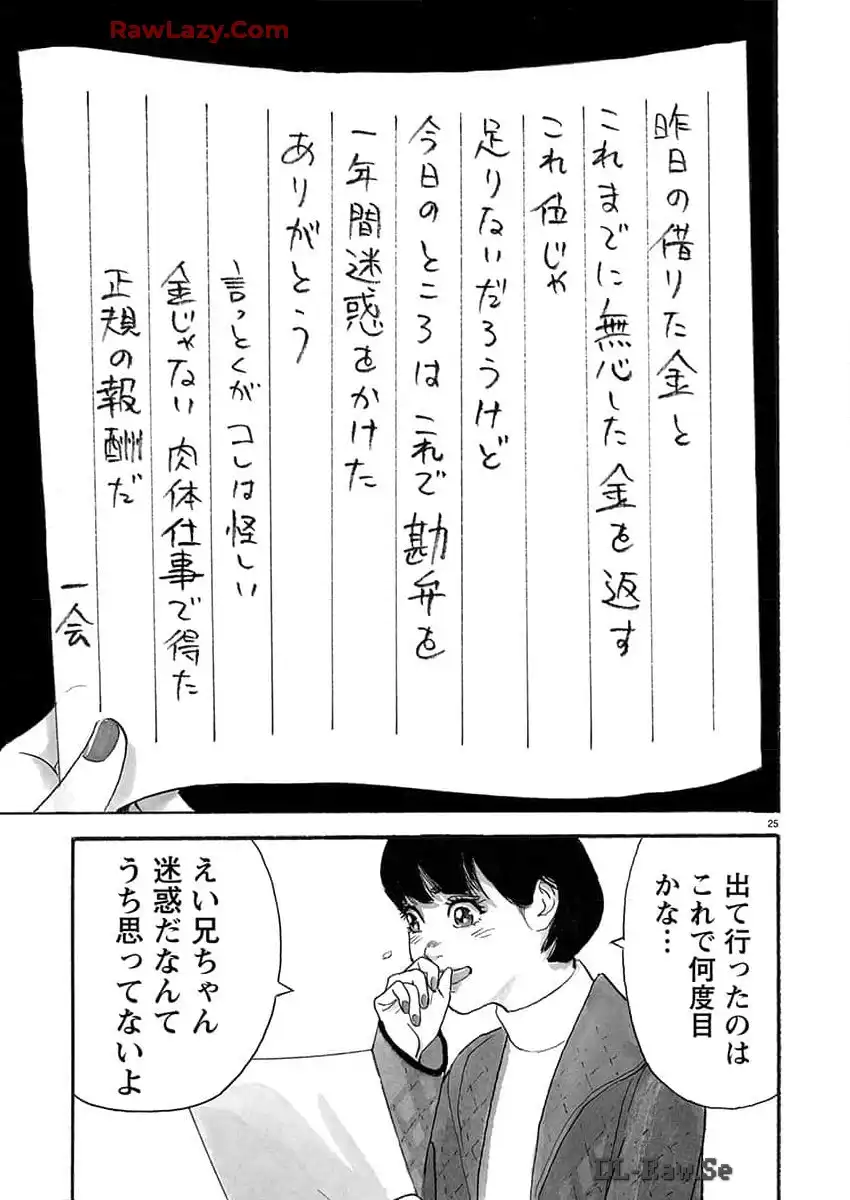 RawLazy.Com
昨日の借りた金と
これまでに無心した金を返す
これ位じゃ
足りないだろうけど
今日のところはこれで勘弁を
一年間迷惑をかけた
ありがとう
言っとくがコレは怪しい
金じゃない肉体仕事で得た
正規の報酬だ
一会
25
出て行ったのは
これで何度目
かな…
えい兄ちゃん
迷惑だなんて
うち思ってないよ
DL-Raw.Se